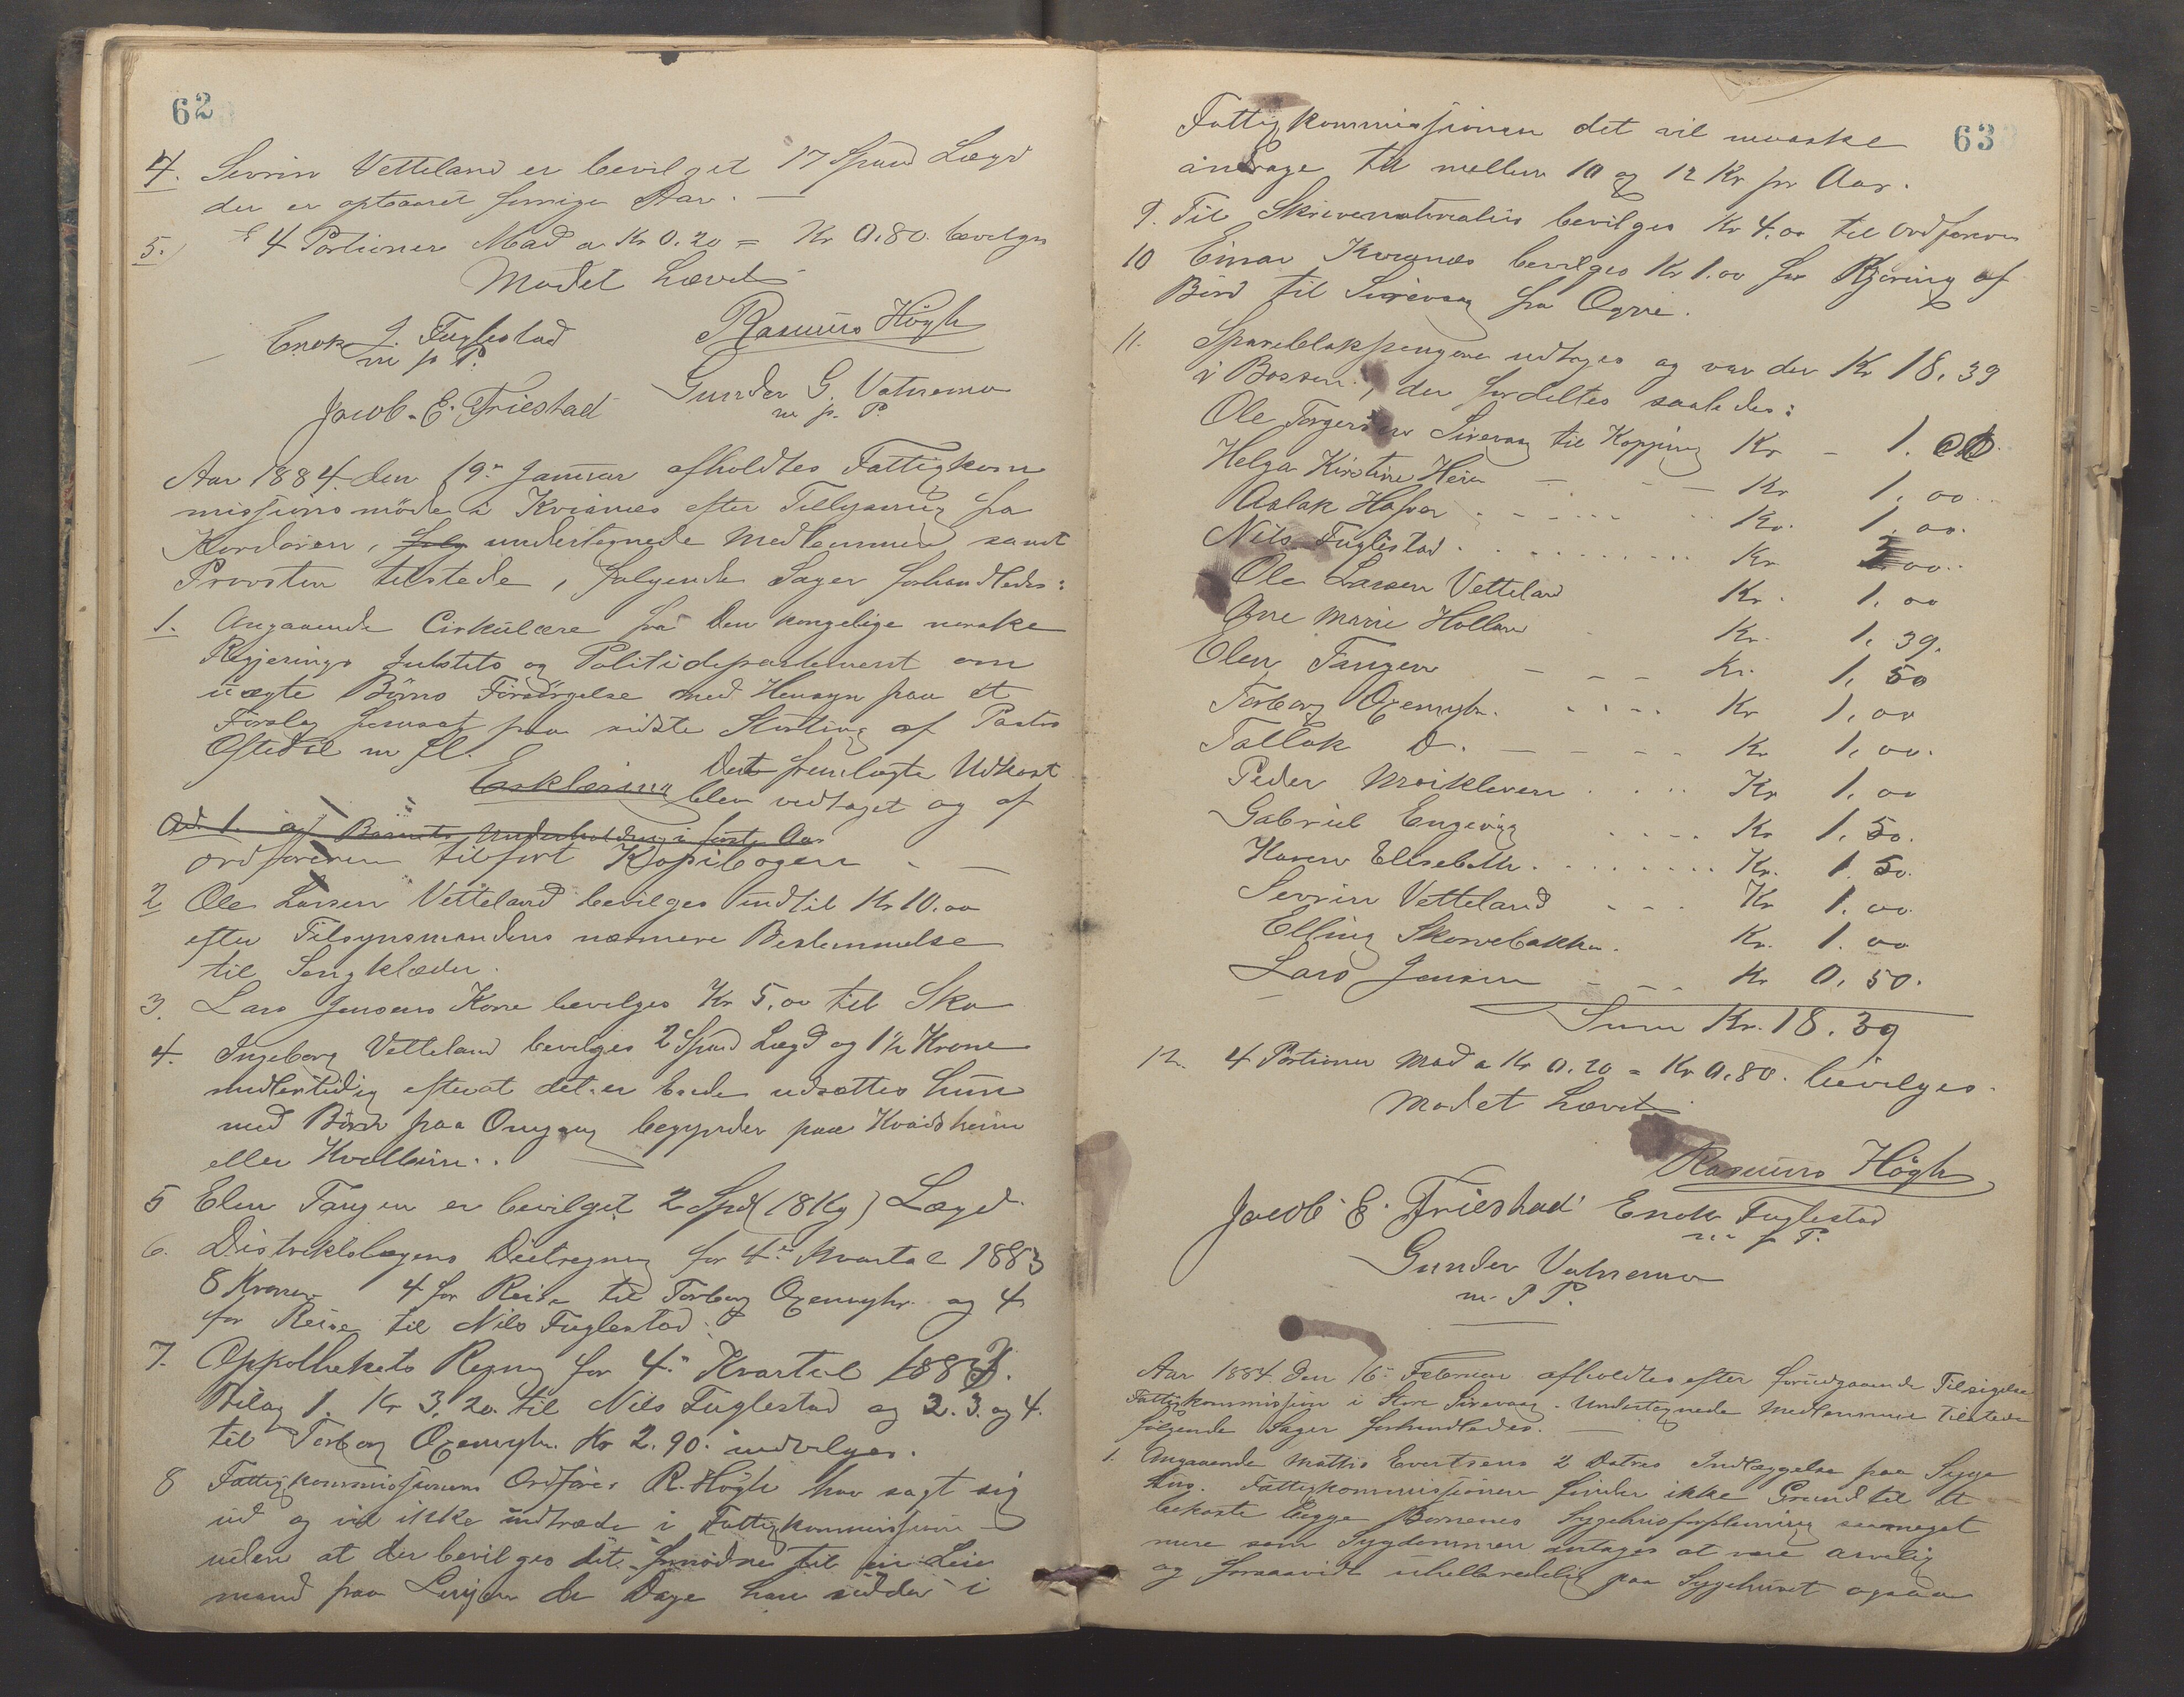 62
4. Sevrin Vetteland er bevilget 17 Spand Lægd
der er optaaret forrige Aar. —
5. 4 Portioner Mad a Kr 0.20 = Kr 0.80. bevilges
Mødet hævet
Enok J. Fuglestad Rasmus Högh
m p P.
Jacob. E. Friestad Gunder G. Vatnemo
m. p. P.
Aar 1884 den 19de Januar afholdtes Fattigkom
missionsmöde i Kvianes efter Tillysning fra
Kordören, undertegnede Medlemmer samt
Provsten tilstede, følgende Sager forhandledes:
1. Angaaende Cirkulære fra Den kongelige norske
Regjerings Justits og Politidepartement om
uægte Börns Forsörgelse med Hensyn paa et
Forslag fremsat paa sidste Storting af Pastor
Oftedal m fl.
Erklæring Det fremlagte Udkast
blev vedtaget og af
Ad. 1. af Barnets Underholdning i første Aar
ordføreren tilført Kopibogen — —
2 Ole Larsen Vetteland bevilges indtil Kr 10.00
efter Tilsynsmandens nærmere Bestemmelse
til Sengklæder.
3. Lars Jensens Kone bevilges Kr 5,00 til Sko
4. Ingeborg Vetteland bevilges 2 Spand Lægd og 1½ Krone
midlertidig efterat det er udsættes hun
med Børn paa Omgang begynder paa Kvidsheim
eller Kvalbein.
5 Elen Tangen er bevilget 2 Spd (18 Kg) Lægd.
6. Distriktslægens Diætregning for 4de Kvartal 1883
8 Kroner 4 for Reise til Torborg Oxemyhr. og 4
for Reise til Nils Fuglestad.
7. Appothekets Regning for 4de Kvartal 1883.
Bilag 1. Kr 3,20 til Nils Fuglestad og 2. 3. og 4.
til Torborg Oxemyhr. Kr 2.90. indvilges.
8 Fattigkommissionens Ordfører R. Högh har sagt sig
ud og vil ikke indtræde i Fattigkommissionen
uden at der bevilges det fornødne til en Leie
mand paa Linjen de Dage han sidder i
63
Fattigkommissionen det vil maaske
andrage til mellem 10 og 12 Kr pr Aar.
9. Til Skrivematerialier bevilges Kr 4,00 til Ordføreren
10 Einar Kvianes bevilges Kr 1.00 for Kjøring af
Bord til Sirevaag fra Ogne.
11. Spareblokpengene udtoges og var der Kr 18,39
i Bøssen, der fordeltes saaledes:
Ole Torgersen Sirevaag til Kopping Kr – 1. 00.
Helga Kirstine Hein — — — Kr 1,00
Aslak Hafsøe . . . . . . Kr. 1,00.
Nils Fuglestad . . . . . . . . Kr 2,00.
Ole Larsen Vetteland Kr. 1.00
Ane Marie Holland Kr. 1,39.
Elen Tangen — — — Kr. 1,50
Torborg Oxemyhr. . . . . Kr 1,00
Tallak D. — — — — Kr 1,00.
Peder Møikleven . . . . Kr 1,00
Gabriel Engevig . . . . Kr 1,50.
Karen Elisabeth . . . . . . . . Kr. 1.50.
Sevrin Vetteland — — — Kr 1.00.
Elling Skarvebakken. Kr. 1.00
Lars Jensen — — — Kr 0,50.
Sum Kr. 18.39
12. 4 Portioner Mad a Kr 0.20 = Kr 0,80. bevilges.
Mødet hævet
Rasmus Högh
Jacob E. Friestad Enok Fuglestad
m p P.
Gunder Vatnemo
m. P P.
Aar 1884 Den 16de Februar afholdtes efter forudgaaende Tilsigelse
Fattigkommission i Store Sirevaag. Undertegnede Medlemmer tilstede
følgende Sager forhandledes. —
1. Angaaende Mattis Evertsens 2 Døtres Indlæggelse paa Syge
hus. Fattigkommissionen finder ikke Grund til at
bekoste begge Børnenes Sygehusforpleining saameget
mere som Sygdommen antages at være arvelig
og forsaavidt uhelbredelig paa Sygehuset ogsaa